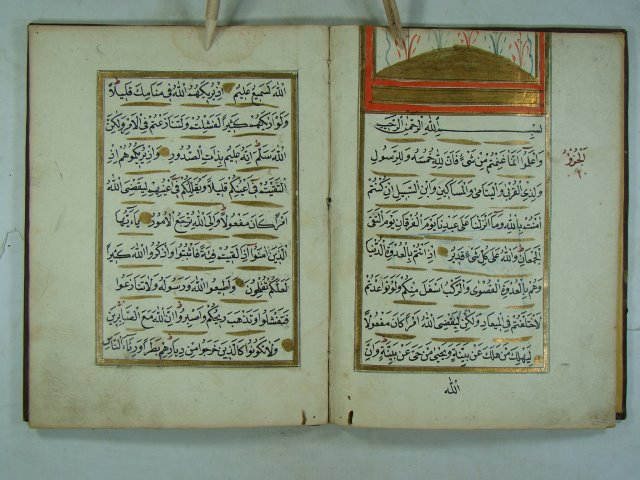 بسم الله الرحمن الرحيم
واعلموا انما غنمتم من شيء فان لله خمسه وللرسول
ولذي القربى واليتامى والمساكين وابن السبيل ان كنتم
امنتم بالله وما انزلنا على عبدنا يوم الفرقان يوم التقى
الجمعان والله على كل شيء قدير اذ انتم بالعدوة الدنيا
وهم بالعدوة القصوى والركب اسفل منكم ولو تواعدتم
لاختلفتم في الميعاد ولكن ليقضي الله امرا كان مفعولا
ليهلك من هلك عن بينة ويحيى من حي عن بينة وان
الله
الله لسميع عليم اذ يريكهم الله في منامك قليلا
ولو اريكهم كثيرا لفشلتم ولتنازعتم في الامر ولكن
الله سلم انه عليم بذات الصدور واذ يريكموهم اذ
التقيتم في اعينكم قليلا ويقللكم في اعينهم ليقضي الله
امرا كان مفعولا والى الله ترجع الامور يا ايها
الذين امنوا اذا لقيتم فئة فاثبتوا واذكروا الله كثيرا
لعلكم تفلحون واطيعوا الله ورسوله ولا تنازعوا
فتفشلوا وتذهب ريحكم واصبروا ان الله مع الصابرين
ولا تكونوا كالذين خرجوا من ديارهم بطرا ورئاء الناس